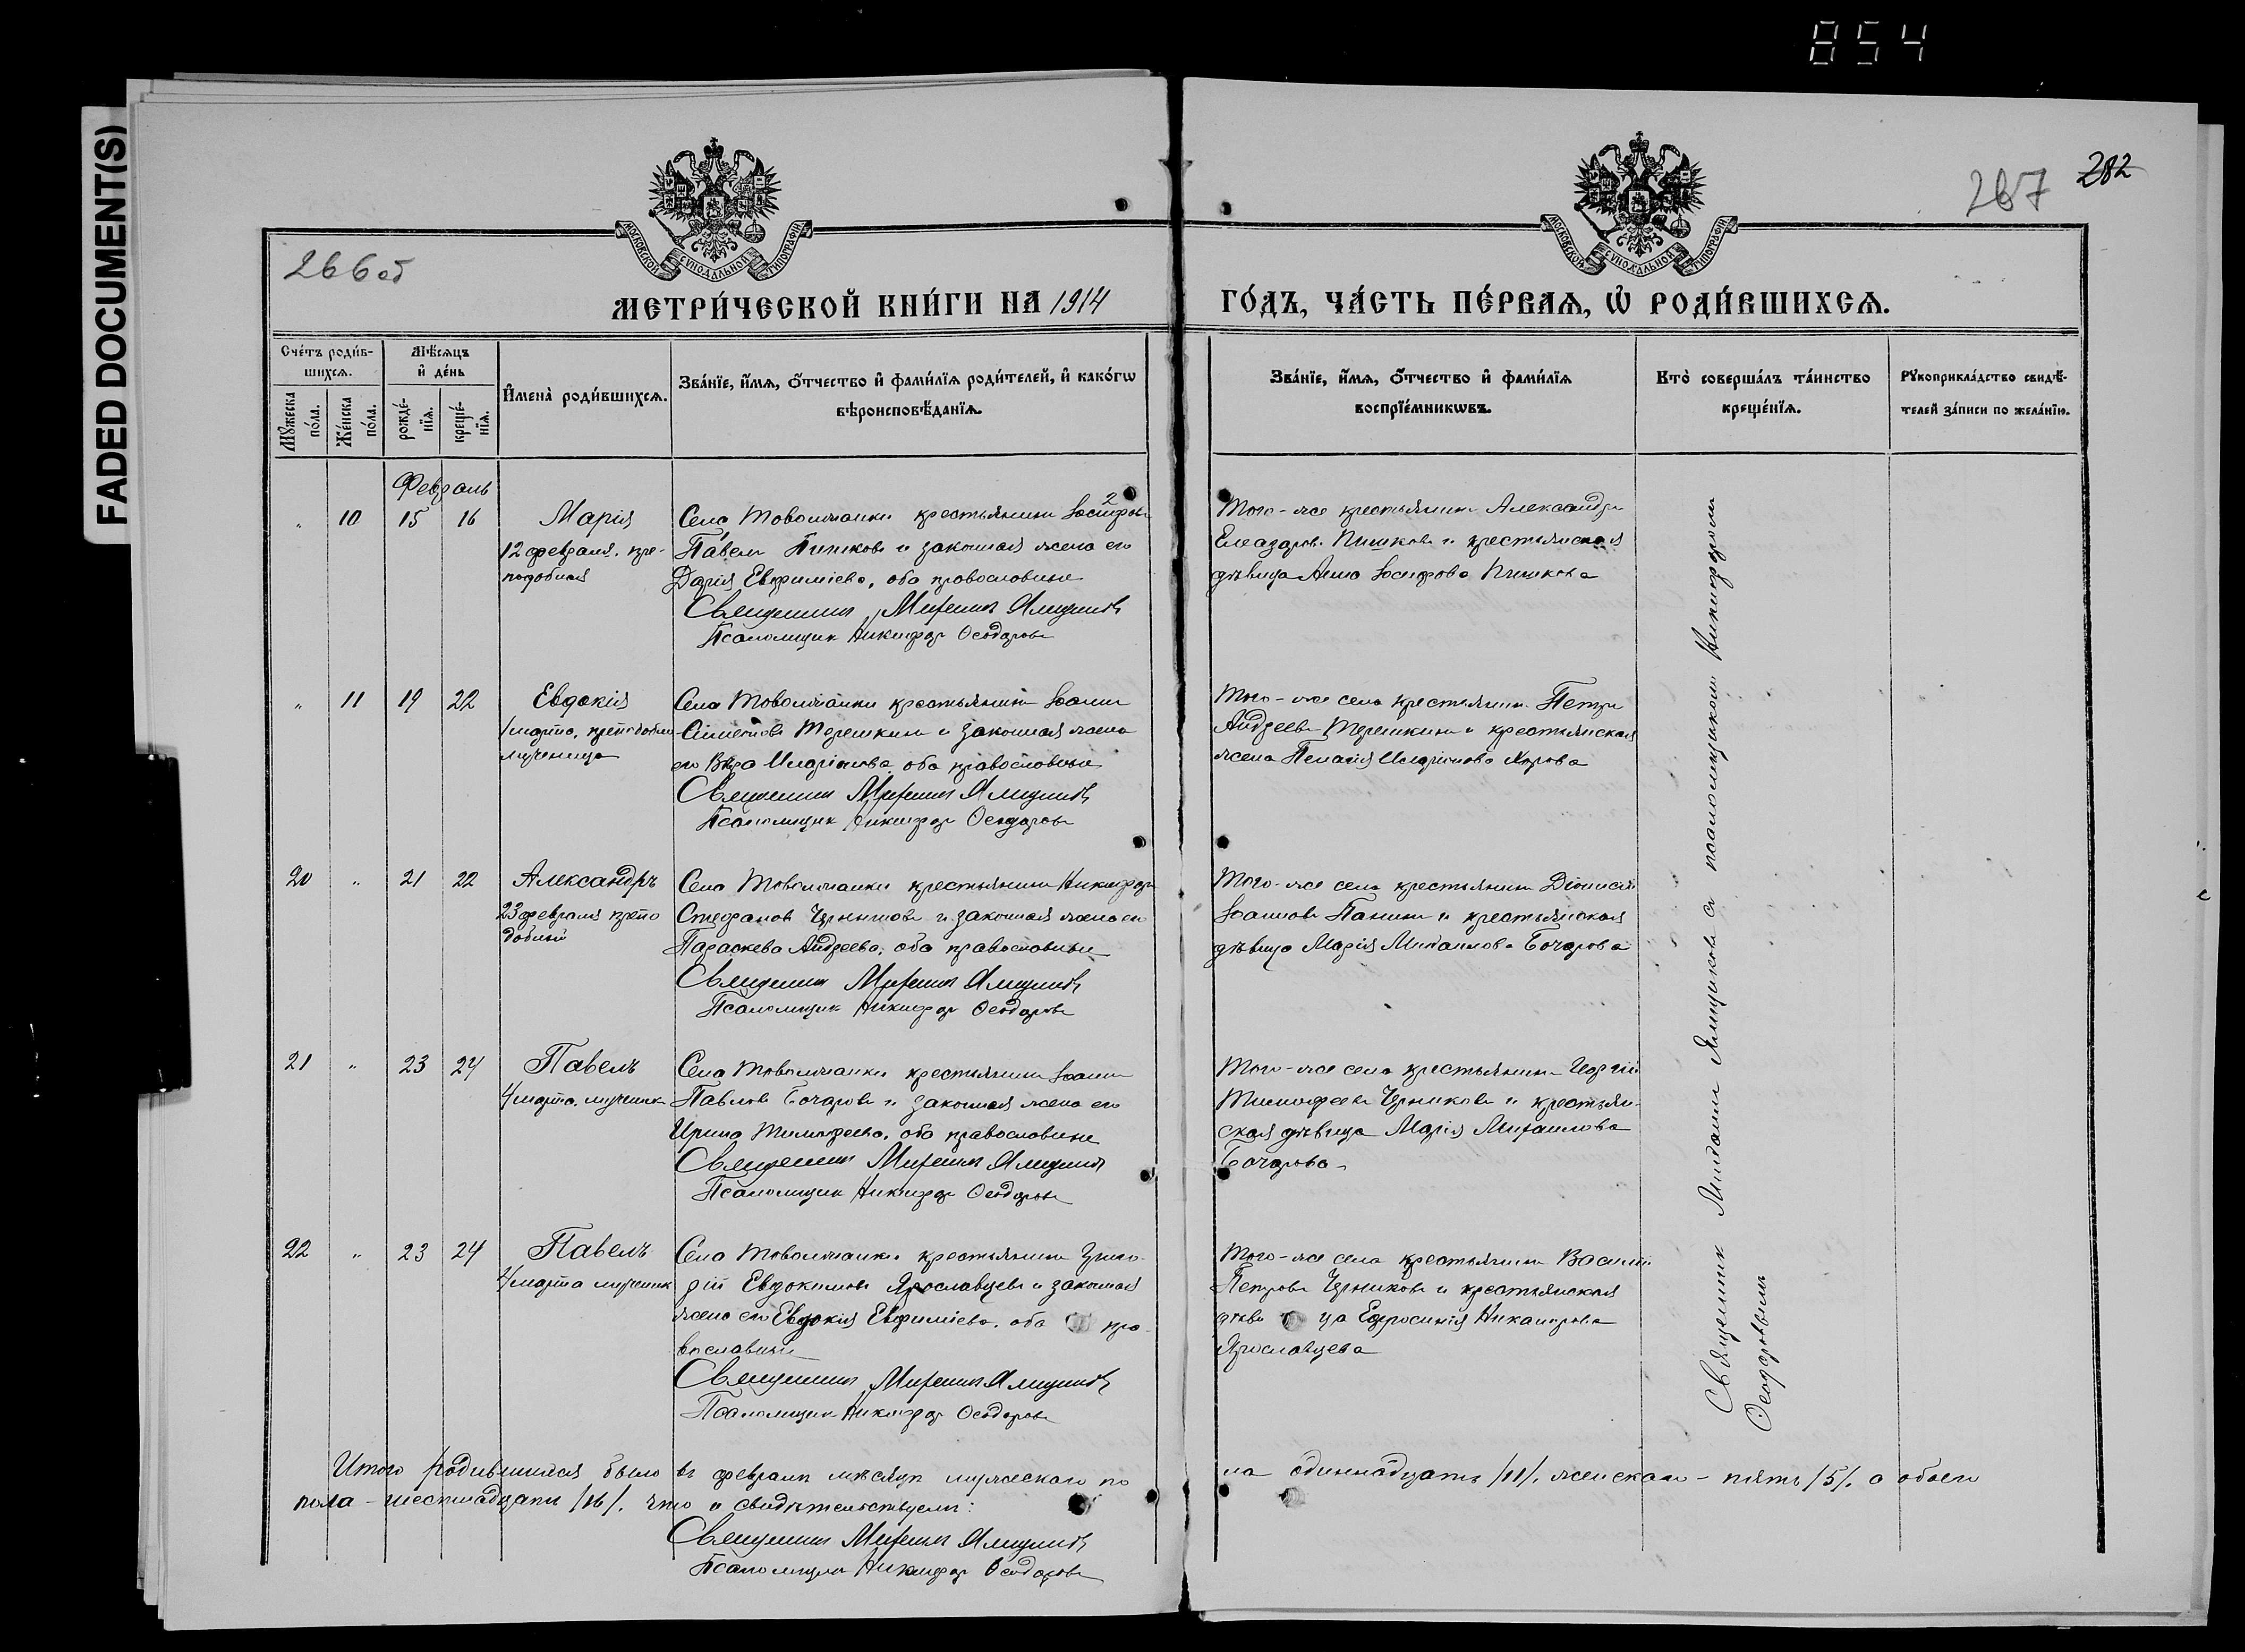 854
FADED DOCUMENT(S)
287 282
266 об
МОСКОВСКОЙ СѴНОДАЛЬНОЙ ТИПОГРАФІИ
МОСКОВСКОЙ СѴНОДАЛЬНОЙ ТИПОГРАФІИ
МЕТРИ́ЧЕСКОЙ КНИ́ГИ НА 1914 ГО́ДЪ, ЧА́СТЬ ПЕ́РВАѦ, Ѡ҆ РОДИ́ВШИХСѦ.
Сче́тъ роди́в-
шихсѧ.
Мꙋ́жеска
по́ла.
Же́нска
по́ла.
Мѣ́сѧцъ
и҆ де́нь
рожде́-
нїѧ.
креще́-
нїѧ.
И҆мена̀ роди́вшихсѧ.
Зва́нїе, и҆́мѧ, ѻ҆́тчество и҆ фами́лїѧ роди́телей, и҆ како́гѡ
вѣроисповѣ́данїѧ.
Зва́нїе, и҆́мѧ, ѻ҆́тчество и҆ фами́лїѧ
воспрїе́мникѡвъ.
Кто̀ соверша́лъ та́инство
креще́нїѧ.
Рꙋкоприкла́дство свидѣ́-
телей за́писи по жела́нїю.
Февраль
" 10 15 16
Марія
12 февраля. пре-
подобная
2
Села Товолжанки крестьянинъ Іосифъ
Павловъ Пишковъ и законная жена его
Дарія Евфиміева, оба православные
Священникъ Михаилъ Ямщиковъ
Псаломщикъ Никифоръ Ѳеодоровъ
Того-же крестьянинъ Александръ
Елеазаровъ Пишковъ и крестьянская
дѣвица Анна Іосифова Пишкова
" 11 19 22
Евдокія
1 марта, преподобно-
мученица
Села Товолжанки крестьянинъ Іоаннъ
Симеоновъ Терешкинъ и законная жена
его Вѣра Иларіонова оба православные
Священникъ Михаилъ Ямщиковъ
Псаломщикъ Никифоръ Ѳеодоровъ
Того-же села крестьянинъ Петръ
Андреевъ Терешкинъ и крестьянская
жена Пелагія Иларіонова
20 " 21 22
Александръ
23 февраля препо
добный
Села Товолжанки крестьянинъ Никифоръ
Стефановъ и законная жена его
Параскева Андреева, оба православные
Священникъ Михаилъ Ямщиковъ
Псаломщикъ Никифоръ Ѳеодоровъ
Того-же села крестьянинъ Діонисій
Іоанновъ Панинъ и крестьянская
дѣвица Марія Михаилова Бочарова
21 " 23 24
Павелъ
4 марта, мученик
Села Товолжанки крестьянинъ Іоаннъ
Павловъ Бочаровъ и законная жена его
Ирина Тимофеева, оба православные
Священникъ Михаилъ Ямщиковъ
Псаломщикъ Никифоръ Ѳеодоровъ
Того-же села крестьянинъ Георгій
Тимофеевъ Черниковъ и крестьян-
ская дѣвица Марія Михаилова
Бочарова
22 " 23 24
Павелъ
4 марта мученик
Села Товолжанки крестьянинъ Григо-
рій Евдокимовъ Ярославцевъ и законная
жена его Евдокія Евфиміева, оба пра-
вославные
Священникъ Михаилъ Ямщиковъ
Псаломщикъ Никифоръ Ѳеодоровъ
Того-же села крестьянинъ Василій
Петровъ Черниковъ и крестьянская
дѣви ца Ефросинія Никанорова
Ярославцева
Священникъ Михаилъ Ямщиковъ съ псаломщикомъ Никифоромъ
Ѳеодоровымъ
Итого родившихся было въ февралѣ мѣсяцѣ мужескаго по
ла одиннадцать /11/, женскаго - пять /5/. а обоего
пола - шестнадцать /16/. что и свидѣтельствуемъ:
Священникъ Михаилъ Ямщиковъ
Псаломщикъ Никифоръ Ѳеодоровъ